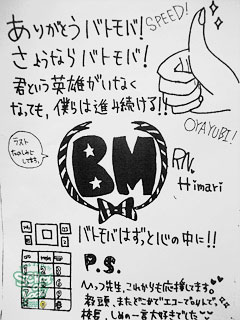 ありがとうバトモバ!
SPEED!
さようならバトモバ!
君という英雄がいなく
なっても、僕らは進み続ける!!
OYAYUBI!
ラスト
BM
RN.
Himari
バトモバはずっと心の中に!!
P.S.
へっつ先生、これからも応援してます。
教頭、またどこかでエコーでなりんで。
校長、しめの一言大好きでした